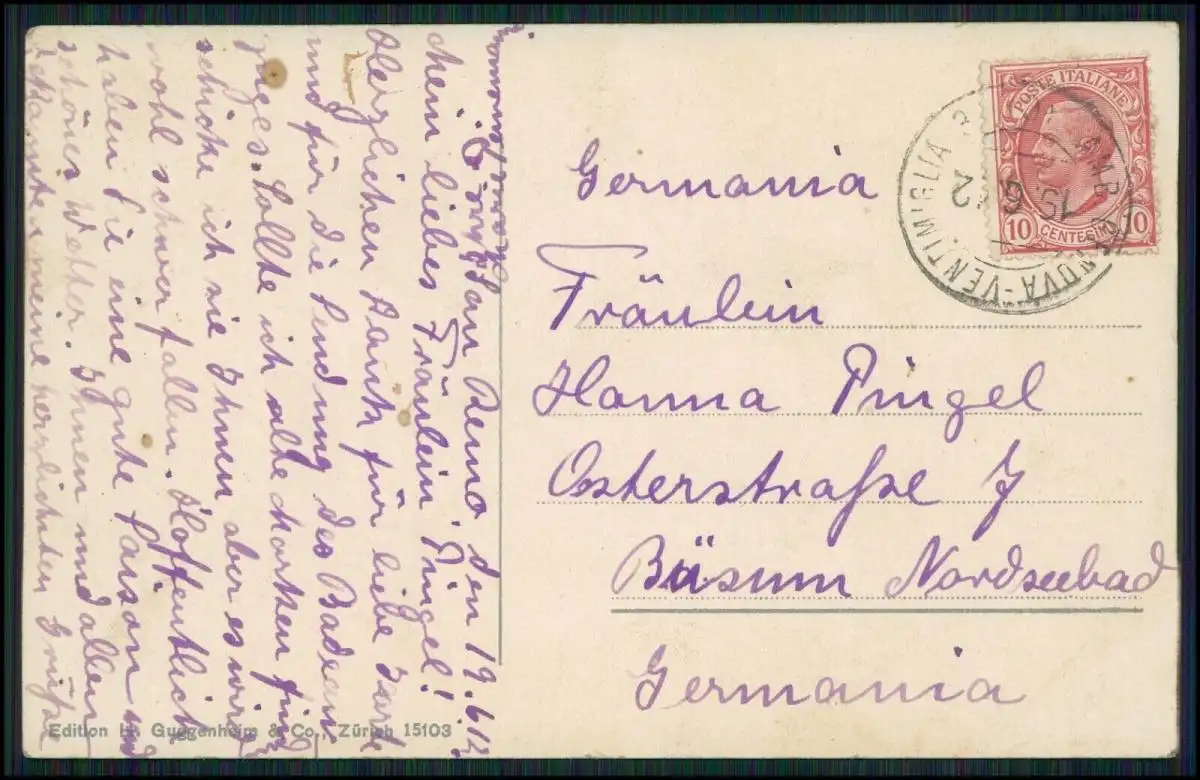 San Remo den 19.6.12
Mein liebes Fräulein Pingel!
Herzlichen Dank für liebe Karte
und für die Sendung des Badean
zeiges. Sollte ich alte Marken find
schicke ich sie Ihnen aber es wird
wohl schwer fallen. Hoffentlich
haben Sie eine gute Saison und
schönes Wetter. Ihnen und allen
Bekannten meine herzlichsten Grüße
Edition H. Guggenheim & Co., Zürich 15103
POSTE ITALIANE
10 CENTESIMI 10
AMB. GENOVA-VENTIMIGLIA
19. 6. 12
Germania
Fräulein
Hanna Pingel
Osterstraße 7
Büsum Nordseebad
Germania